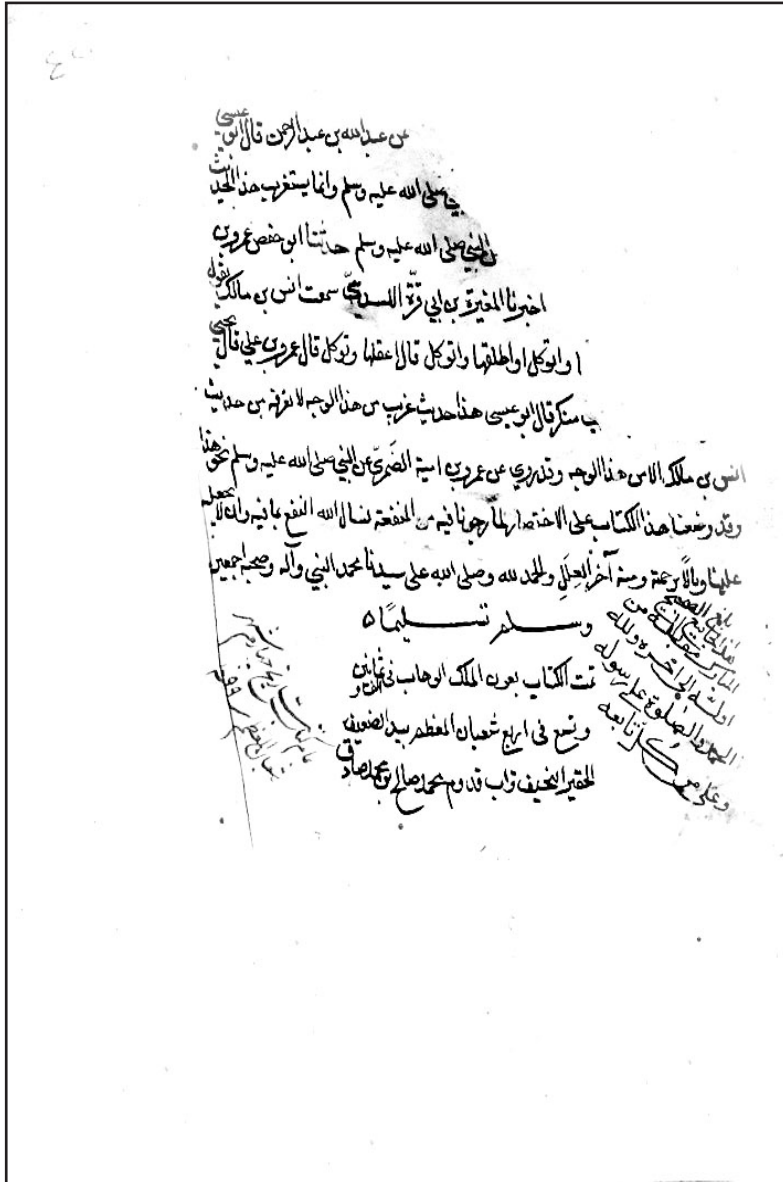 عن عبدالله بن عبدالرحمن قال ابو عيسى
صلى الله عليه وسلم وانما يستغرب هذا الحديث
النبي صلى الله عليه وسلم حدثنا ابو حفص عمرو بن
اخبرنا المغيرة بن ابي قرة السدوسي سمعت انس بن مالك يقول
ا واتوكل او اطلقها واتوكل قال اعقلها وتوكل قال عمرو بن علي قال يحيى
منكر قال ابو عيسى هذا حديث غريب من هذا الوجه لا نعرفه من حديث
انس بن مالك الا من هذا الوجه وقد روي عن عمرو بن امية الضمري عن النبي صلى الله عليه وسلم نحو هذا
وقد وضعنا هذا الكتاب على الاختصار لما رجونا فيه من المنفعة نسال الله النفع بما فيه وان لا يجعله
علينا وبالا برحمته ومنه آخر العلل والحمد لله وصلى الله على سيدنا محمد النبي وآله وصحبه اجمعين
وسلم تسليما ٥
تمت الكتاب بعون الملك الوهاب فى ثمانين
وتسع فى اربع شعبان المعظم بيد الضعيف
الحقير النحيف تراب قدوم محمد صالح بن محمد صادق
المبارك
اوله الى آخره ولله
الحمد والصلوة على رسوله
وعلى من تابعه